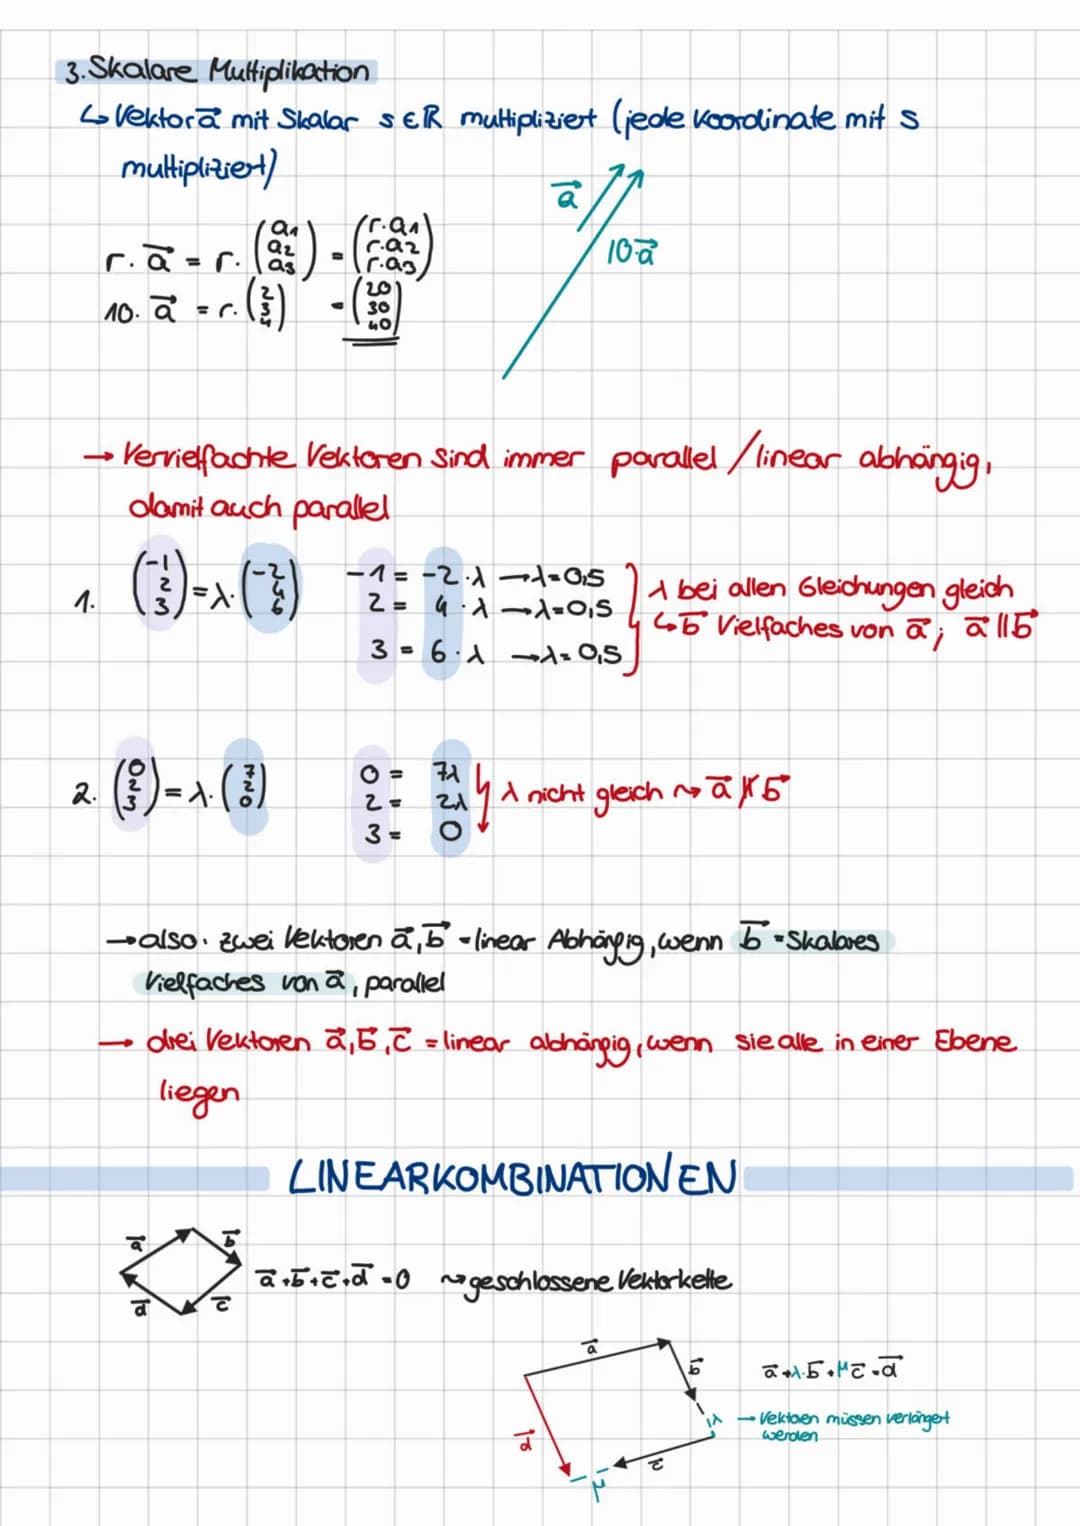 3. Skalare Multiplikation
↳ Vektor a⃗ mit Skalar s∈ℝ multipliziert (jede Koordinate mit s
multipliziert)
a⃗
10·a⃗
r·a⃗ = r·(a1 a2 a3) = (r·a1 r·a2 r·a3)
10·a⃗ = r·(2 3 4) = (20 30 40)
→ Vervielfachte Vektoren sind immer parallel / linear abhängig,
damit auch parallel
1. (-1 2 3) = λ·(-2 4 6)
-1 = -2·λ → λ=0,5
2 = 4·λ → λ=0,5
3 = 6·λ → λ=0,5
λ bei allen Gleichungen gleich
↳ b⃗ Vielfaches von a⃗; a⃗ ∥ b⃗
2. (0 2 3) = λ·(7 2 0)
0 = 7λ
2 = 2λ
3 = 0
λ nicht gleich ⇝ a⃗ ∦ b⃗
→ also: zwei Vektoren a⃗, b⃗ = linear Abhängig, wenn b⃗ = Skalares
Vielfaches von a⃗, parallel
→ drei Vektoren a⃗, b⃗, c⃗ = linear abhängig, wenn sie alle in einer Ebene
liegen
LINEARKOMBINATIONEN
a⃗ b⃗
a⃗+b⃗+c⃗+d⃗ = 0 ⇝ geschlossene Vektorkette
d⃗ c⃗
a⃗
b⃗
a⃗+λ·b⃗+μc⃗=d⃗
λ
→ Vektoen müssen verlängert
werden
d⃗
c⃗
μ